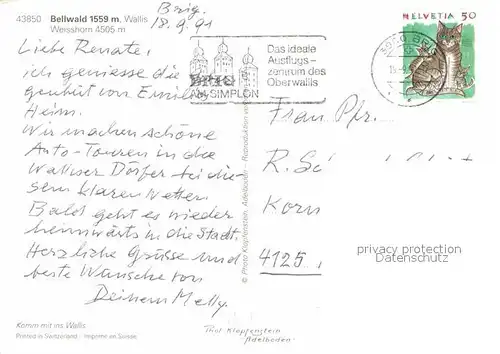 43850 Bellwald 1559 m, Wallis
Weisshorn 4505 m
Brig,
18.9.91
Liebe Renate,
ich geniesse die
von Emilio
Heim.
Wir machen schöne
Auto-Touren in die
Walliser Dörfer bei die-
sem klaren Wetter.
Bald geht es wieder
heimwärts in die Stadt.
Herzliche Grüsse und
beste Wünsche von
Deinem Melly.
Komm mit ins Wallis
Printed in Switzerland / Imprimé en Suisse
BRIG
AM SIMPLON
Das ideale
Ausflugs-
zentrum des
Oberwallis
HELVETIA 50
Frau Pfr.
R. Sc
Korn
4125
privacy protection
Datenschutz
© Photo Klopfenstein, Adelboden - Reproduktion
Thol Klopfenstein
Adelboden